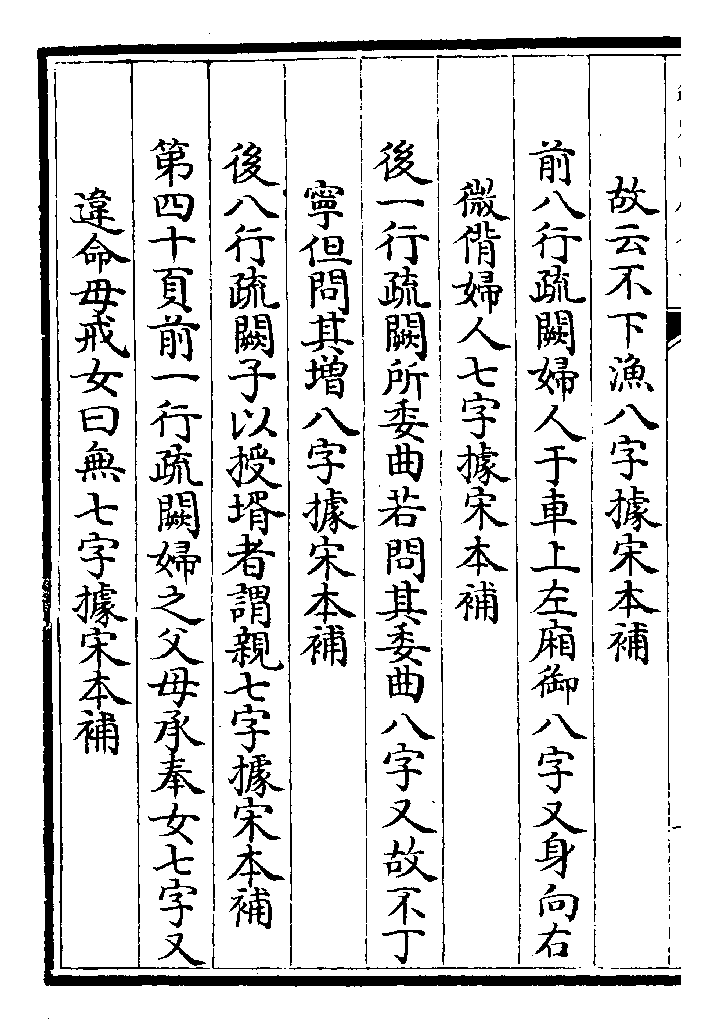 故云不下漁八字據宋本補
前八行疏闕婦人于車上左廂御八字又身向右
微偝婦人七字據宋本補
後一行疏闕所委曲若問其委曲八字又故不丁
寧但問其增八字據宋本補
後八行疏闕子以授壻者謂親七字據宋本補
第四十頁前一行疏闕婦之父母承奉女七字又
違命母戒女曰無七字據宋本補